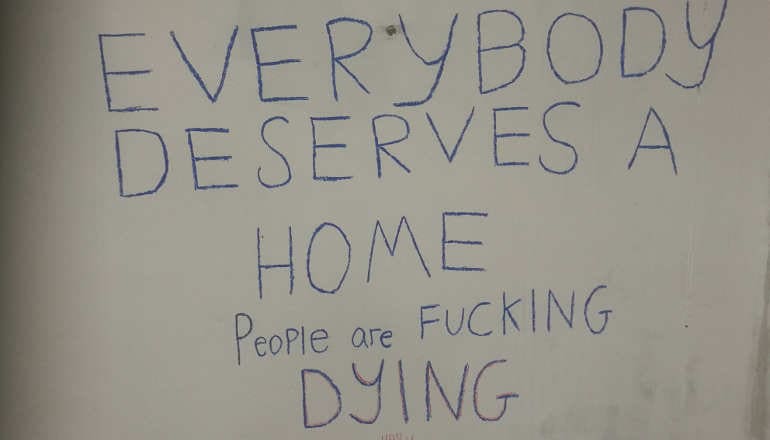 EVERYBODY
DESERVES A
HOME
People are FUCKING
DYING